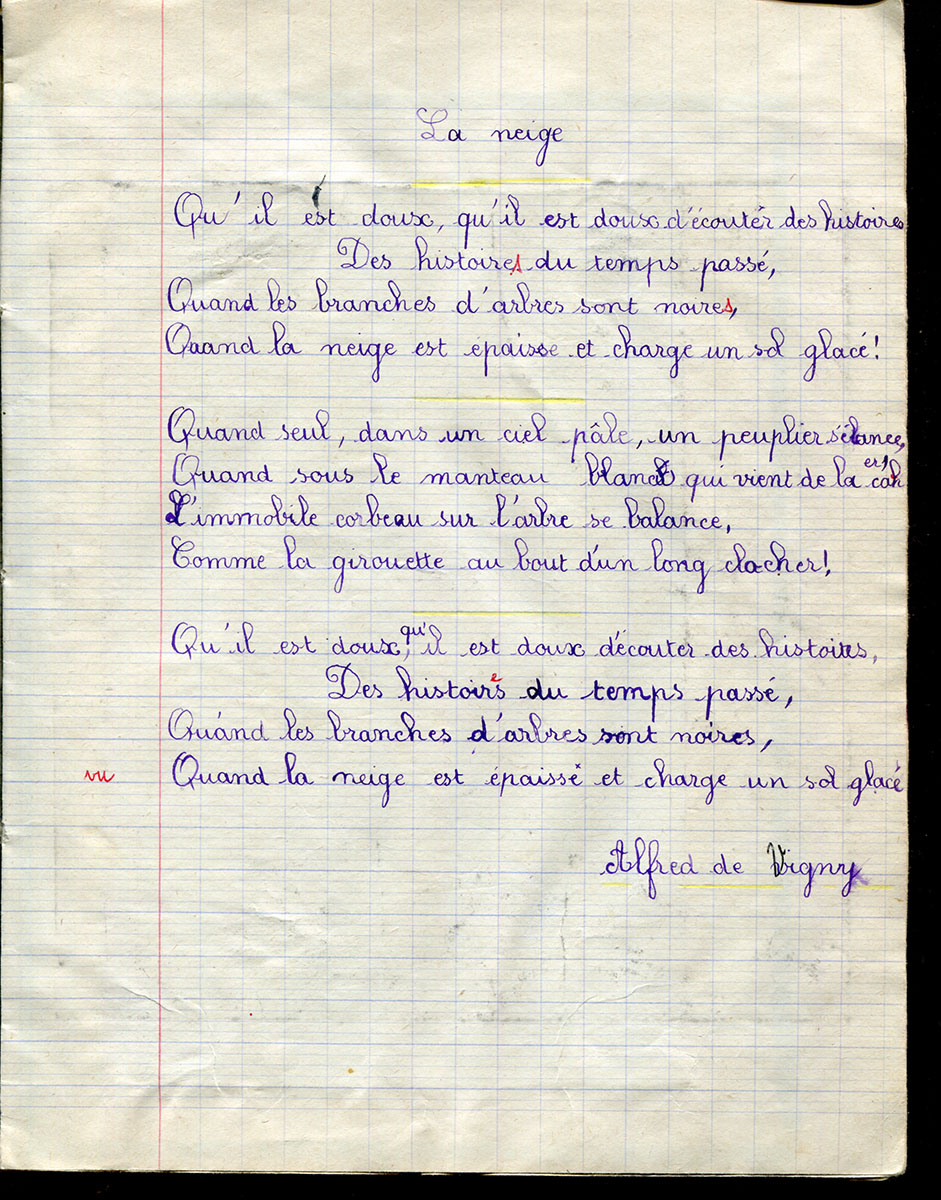 La neige
Qu'il est doux, qu'il est doux d'écouter des histoires
Des histoires du temps passé,
Quand les branches d'arbres sont noires,
Quand la neige est epaisse et charge un sol glacé!
Quand seul, dans un ciel pâle, un peuplier s'élance,
Quand sous le manteau blanc qui vient de la cacher
L'immobile corbeau sur l'arbre se balance,
Comme la girouette au bout d'un long clocher!
Qu'il est doux, qu'il est doux d'écouter des histoires,
Des histoires du temps passé,
Quand les branches d'arbres sont noires,
vu Quand la neige est épaisse et charge un sol glacé
Alfred de Vigny